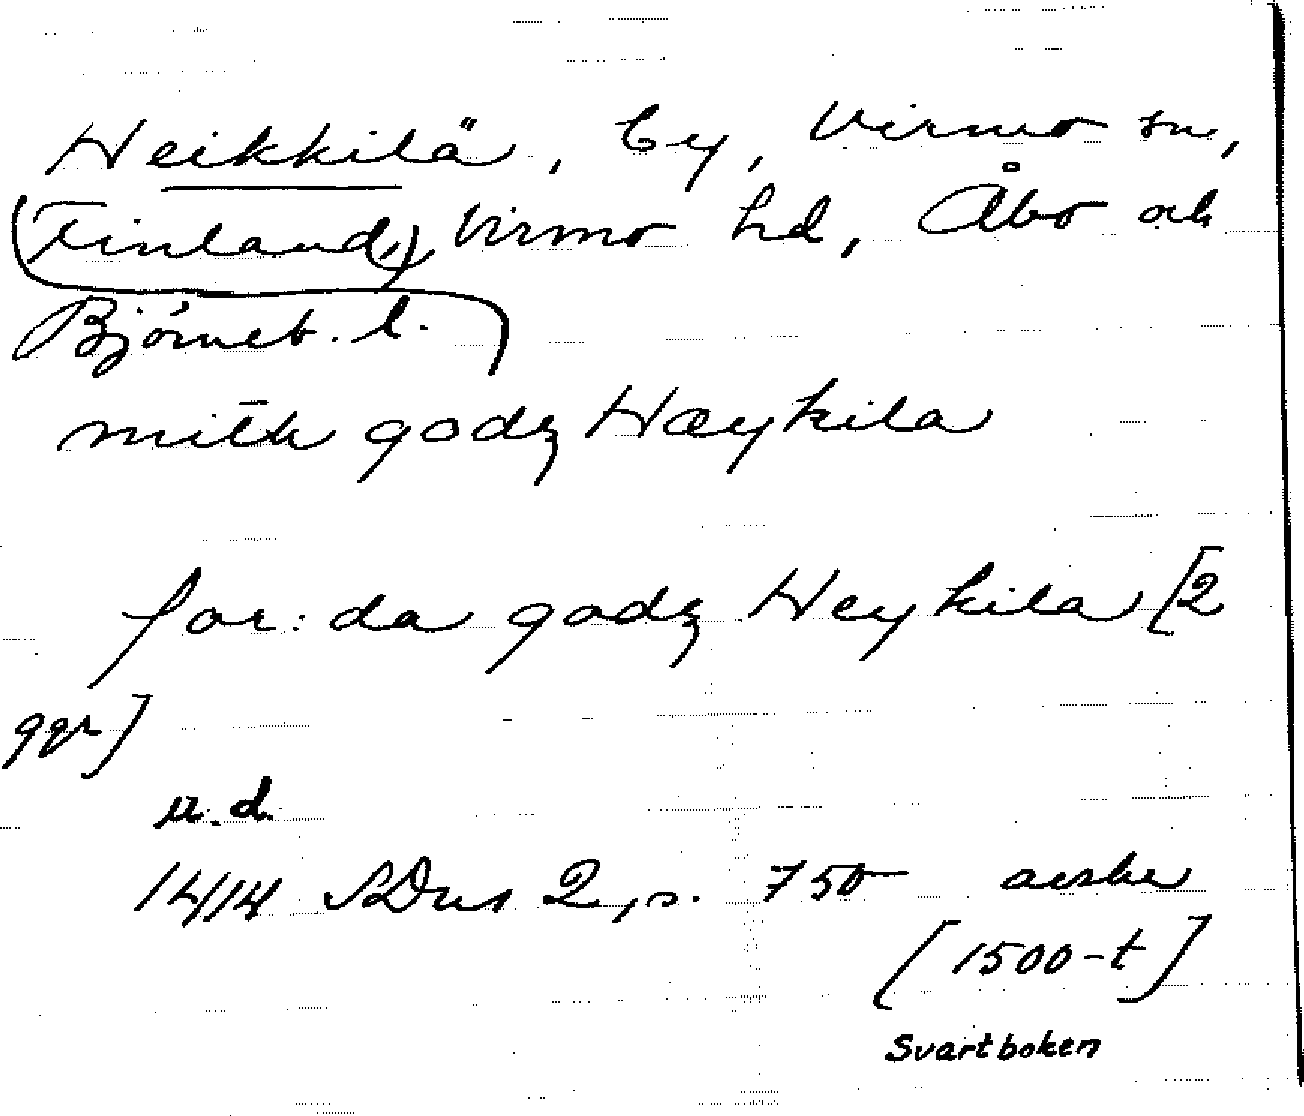 Heikkilä, by, Virmo sn,
(Finland,) Virmo hd, Åbo och
Björneb. l.)
mith godz Haykila
for: da godz Heykila [2
ggr]
u. d.
1414 SDns 2, s. 750 avskr
[1500-t]
Svartboken